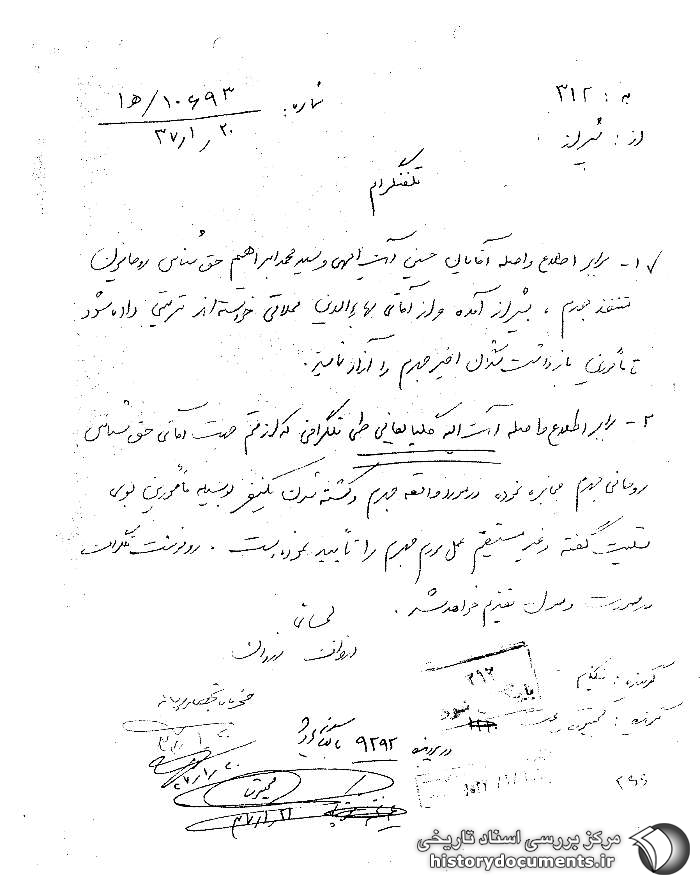 به : ۳۱۲
از : شیراز
شماره : ۱۰۶۹۳/ﻫ۱
۲۰/۱/۳۷
تلفنگرام
۱- برابر اطلاع واصله آقایان حسین آیت‌اللهی و سید محمد ابراهیم حق شناس روحانیون
متنفذ جهرم ، بشیراز آمده و از آقای بهاءالدین محلاتی خواسته‌اند ترتیبی داده شود
تا مأمورین بازداشت شدگان اخیر جهرم را آزاد نمایند .
۲- برابر اطلاع واصله آیت الله گلپایگانی طی تلگرافی که از قم جهت آقای حق شناس
روحانی جهرم مخابره نموده در مورد واقعه جهرم و کشته شدن یکنفر بوسیله مأمورین بوی
تسلیت گفته و غیر مستقیم عمل مردم جهرم را تأیید نموده است . رونوشت تلگراف
در صورت وصول تقدیم خواهد شد .
گیرنده :
۲۹۲
در پرونده ۹۲۹۲ بایگانی شود
۲۰/۱/۳۷
۲۱/۱/۳۷
مرکز بررسی اسناد تاریخی
historydocuments.ir